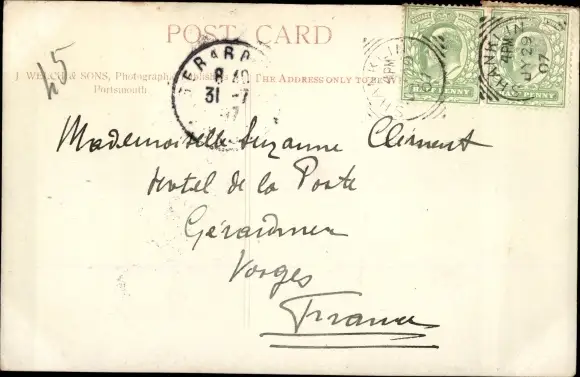 POST CARD
45
J. WELCH & SONS, Photographic Publishers
Portsmouth
THE ADDRESS ONLY TO BE
GERARD
8 40
31 -7
07
SHANKLIN
4 PM
JY 29
07
SHANKLIN
4 PM
JY 29
07
HALFPENNY
HALFPENNY
Mademoiselle Suzanne Clément
Hotel de la Poste
Gérardmer
Vosges
France